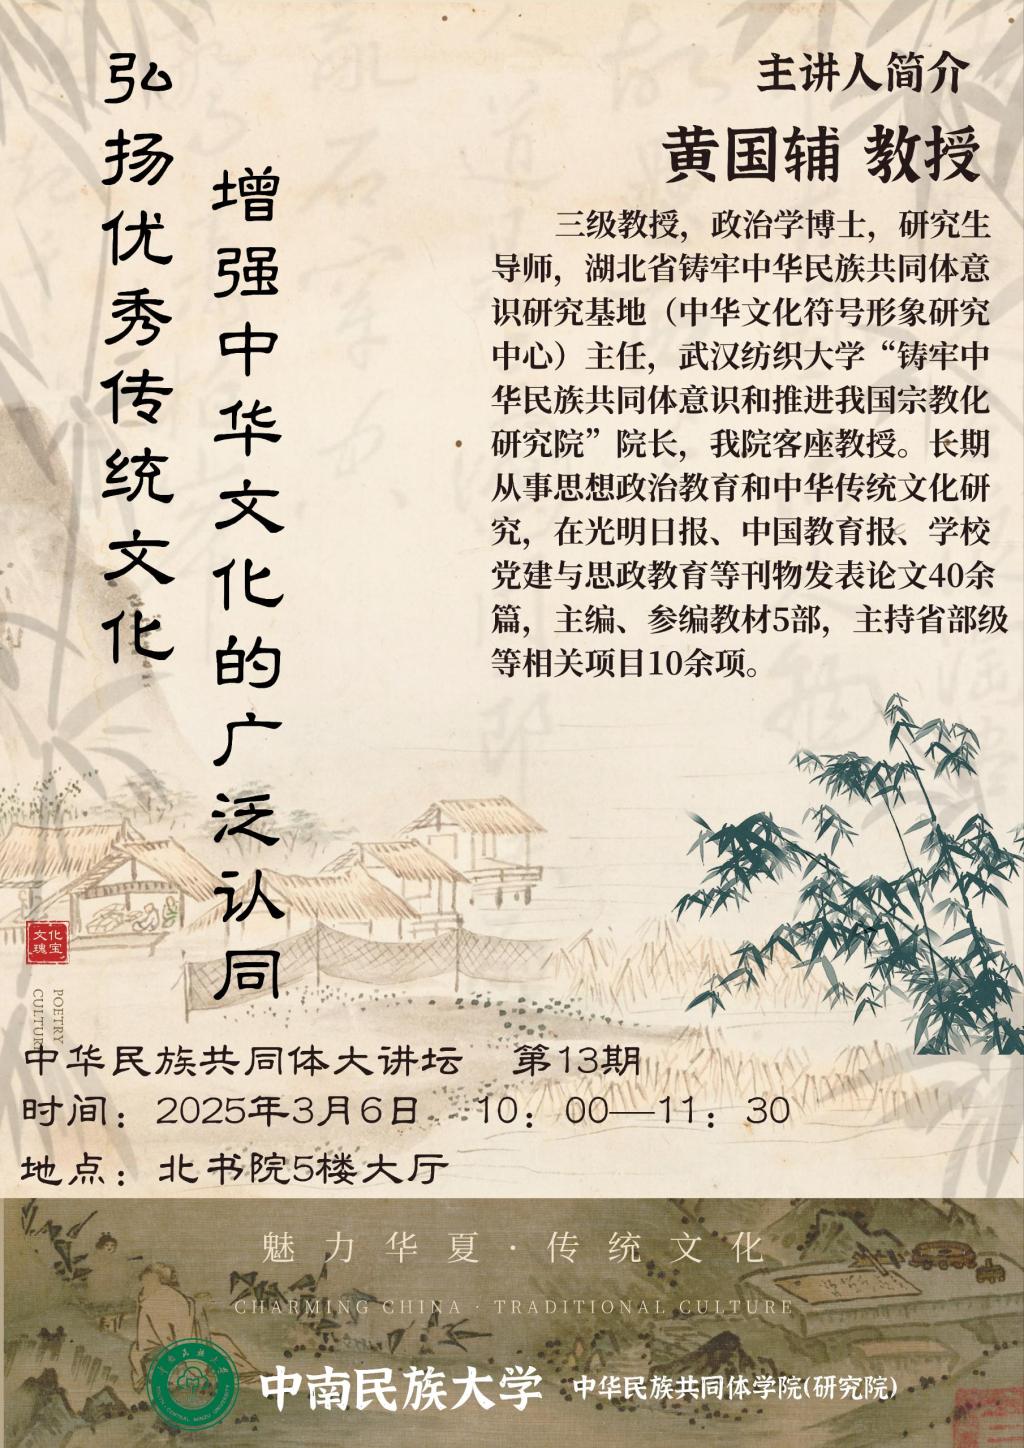 弘扬优秀传统文化
增强中华文化的广泛认同
主讲人简介
黄国辅 教授
三级教授，政治学博士，研究生
导师，湖北省铸牢中华民族共同体意
识研究基地（中华文化符号形象研究
中心）主任，武汉纺织大学“铸牢中
华民族共同体意识和推进我国宗教化
研究院”院长，我院客座教授。长期
从事思想政治教育和中华传统文化研
究，在光明日报、中国教育报、学校
党建与思政教育等刊物发表论文40余
篇，主编、参编教材5部，主持省部级
等相关项目10余项。
文化
瑰宝
POETRY
CULTURE
中华民族共同体大讲坛 第13期
时间：2025年3月6日 10：00—11：30
地点：北书院5楼大厅
魅力华夏·传统文化
CHARMING CHINA · TRADITIONAL CULTURE
中南民族大学 中华民族共同体学院(研究院)